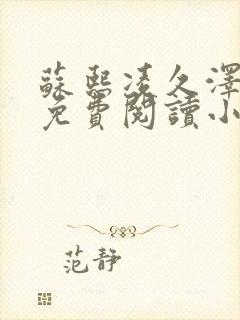 蘇熙凌久澤
免費閱讀小
范靜